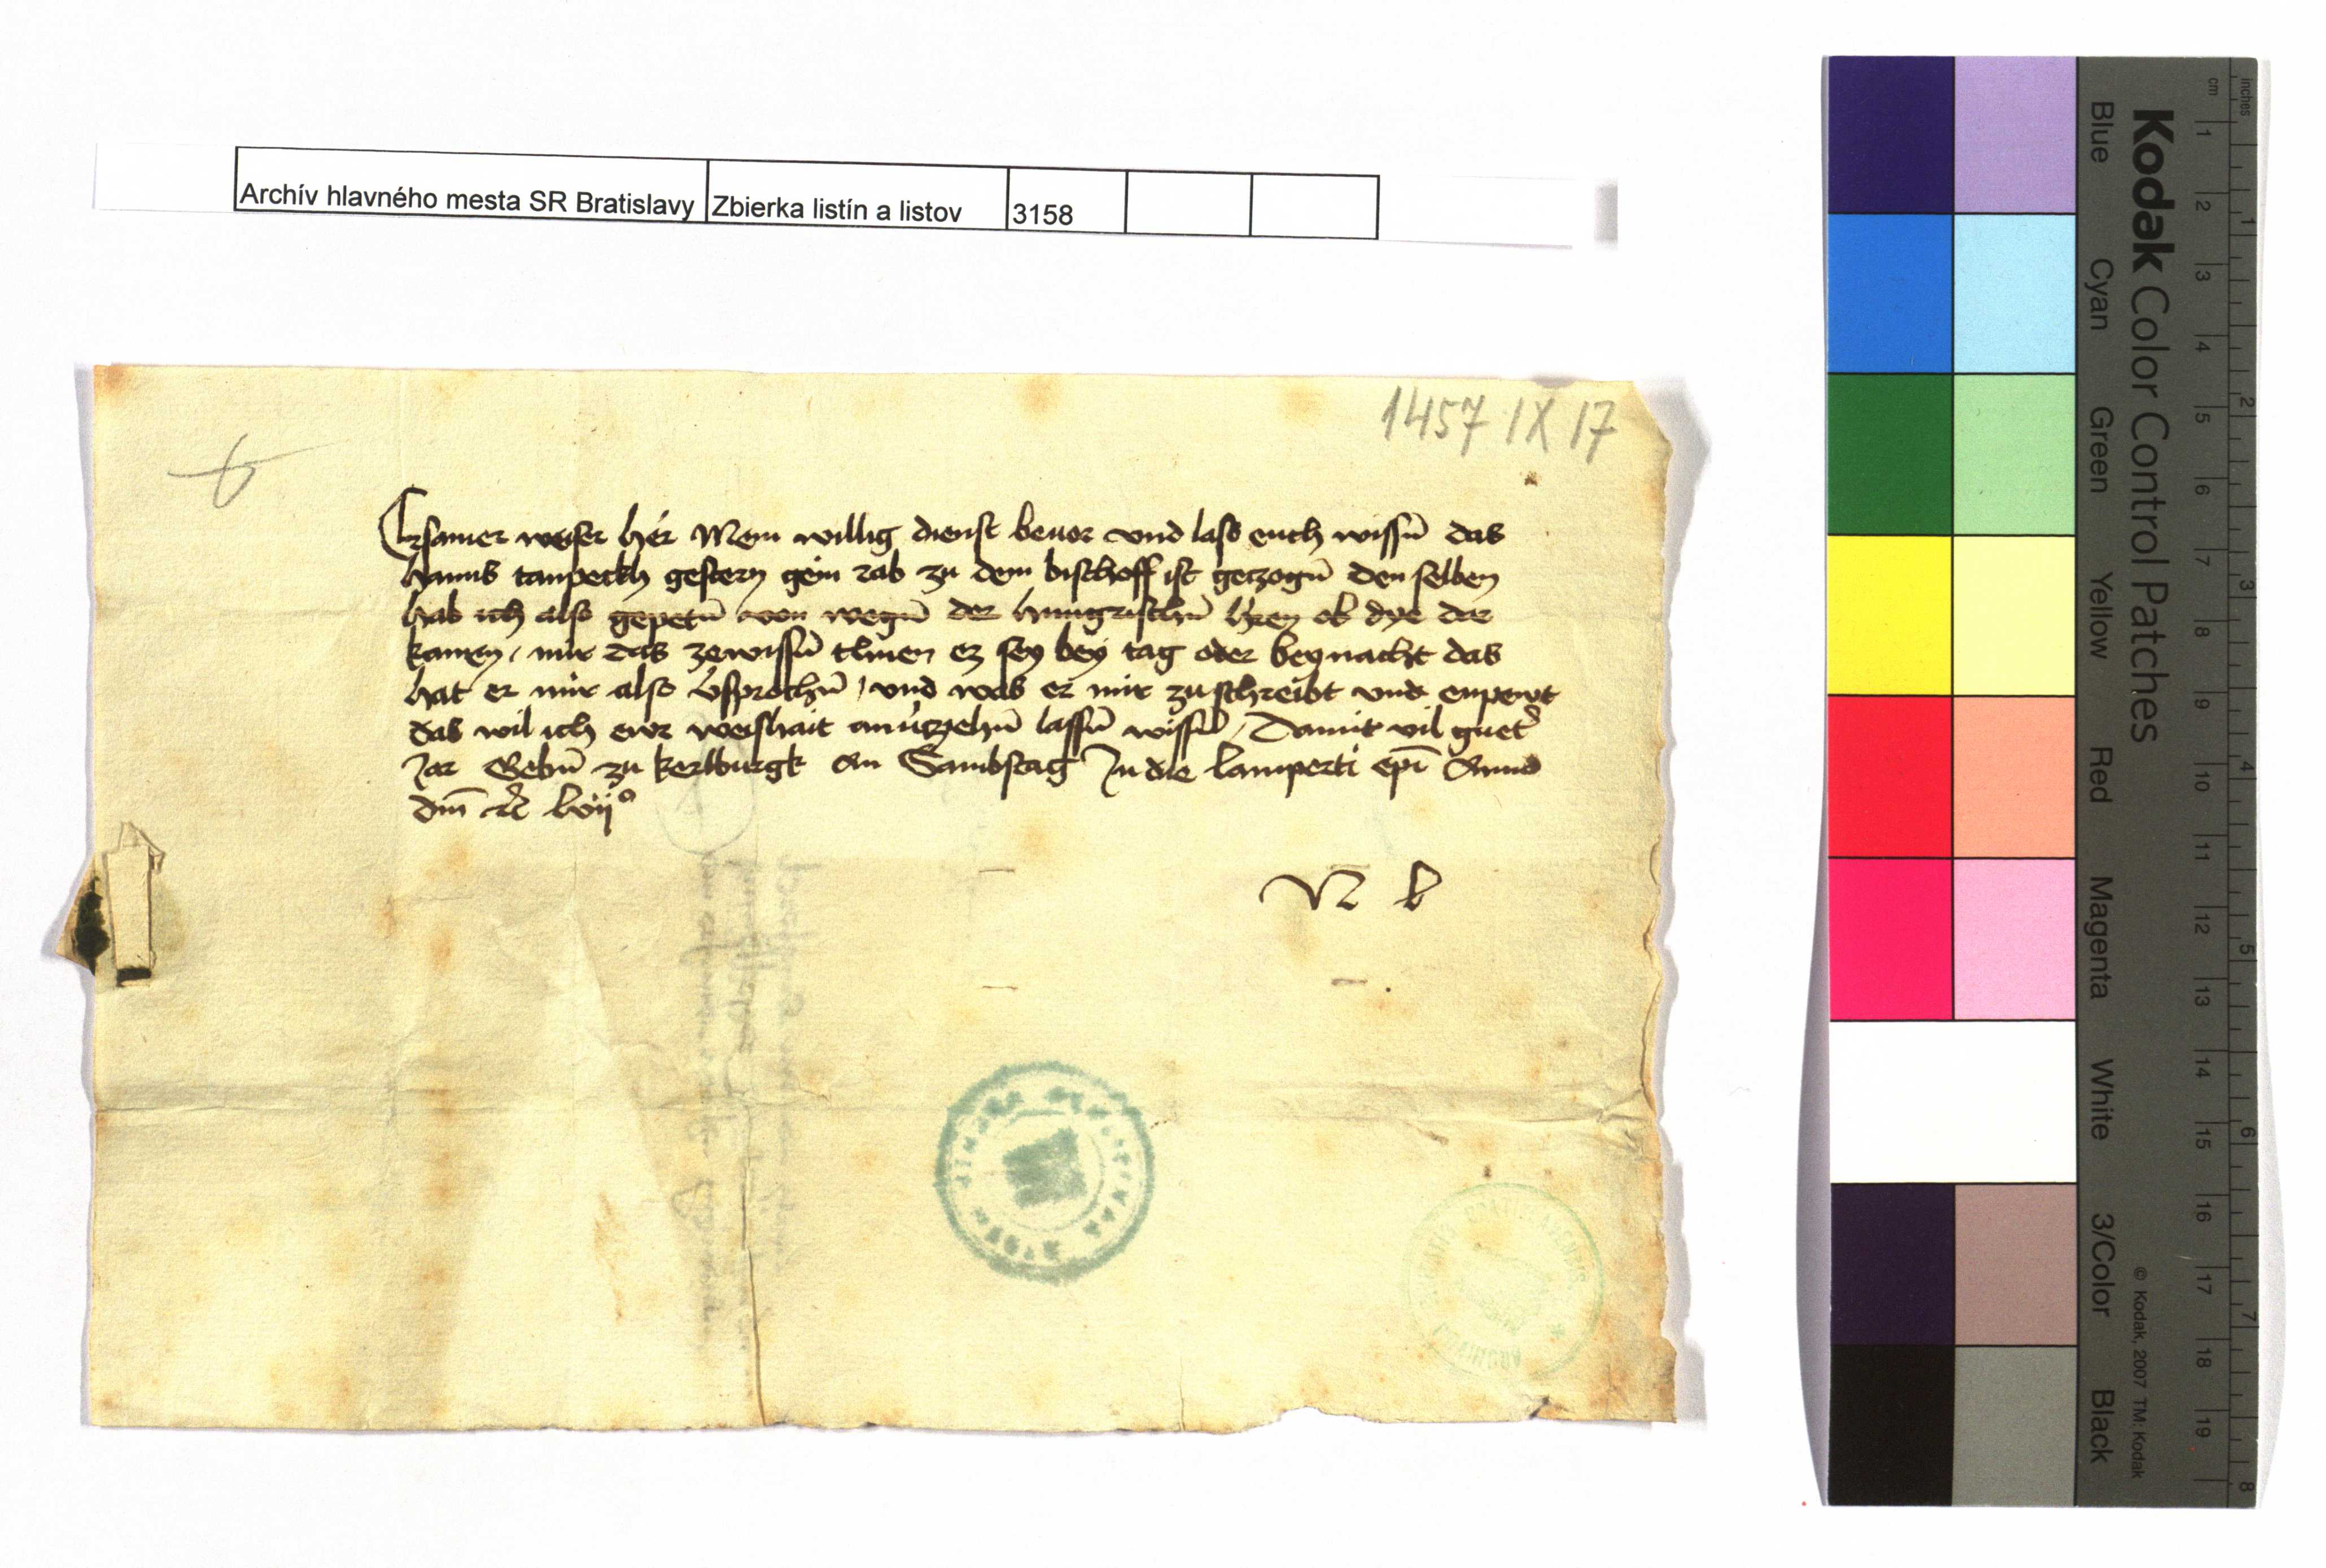 Archív hlavného mesta SR Bratislavy Zbierka listín a listov 3158
1457 IX 17
Ersamer weiser her Mein willig dienst beuor vnd lass euch wissn̄ das
hanns tanpeckh gestern gein rab zu dem bischoff ist geczogn̄ den selben
hab ich also gepetn̄ von wegn̄ der hungrischn̄ hren ob dye dar
kamen / mir das zewissn̄ thuen ez sey bey tag oder bey nacht das
hat er mir also v̓sprochn̄ / vnd was er mir zu schreibt vnd enpewt
das wil ich ewr weishait lassn̄ wissn̄ / Damit vil guet̓
Jar Gebn̄ zu kerlburgk An Sambstag In die lamperti ep̄i Anno
dm̄ lvij°
N b
Kodak Color Control Patches
Blue Cyan Green Yellow Red Magenta White 3/Color Black
inches 1 2 3 4 5 6 7 8
cm 1 2 3 4 5 6 7 8 9 10 11 12 13 14 15 16 17 18 19
© Kodak, 2007 TM: Kodak